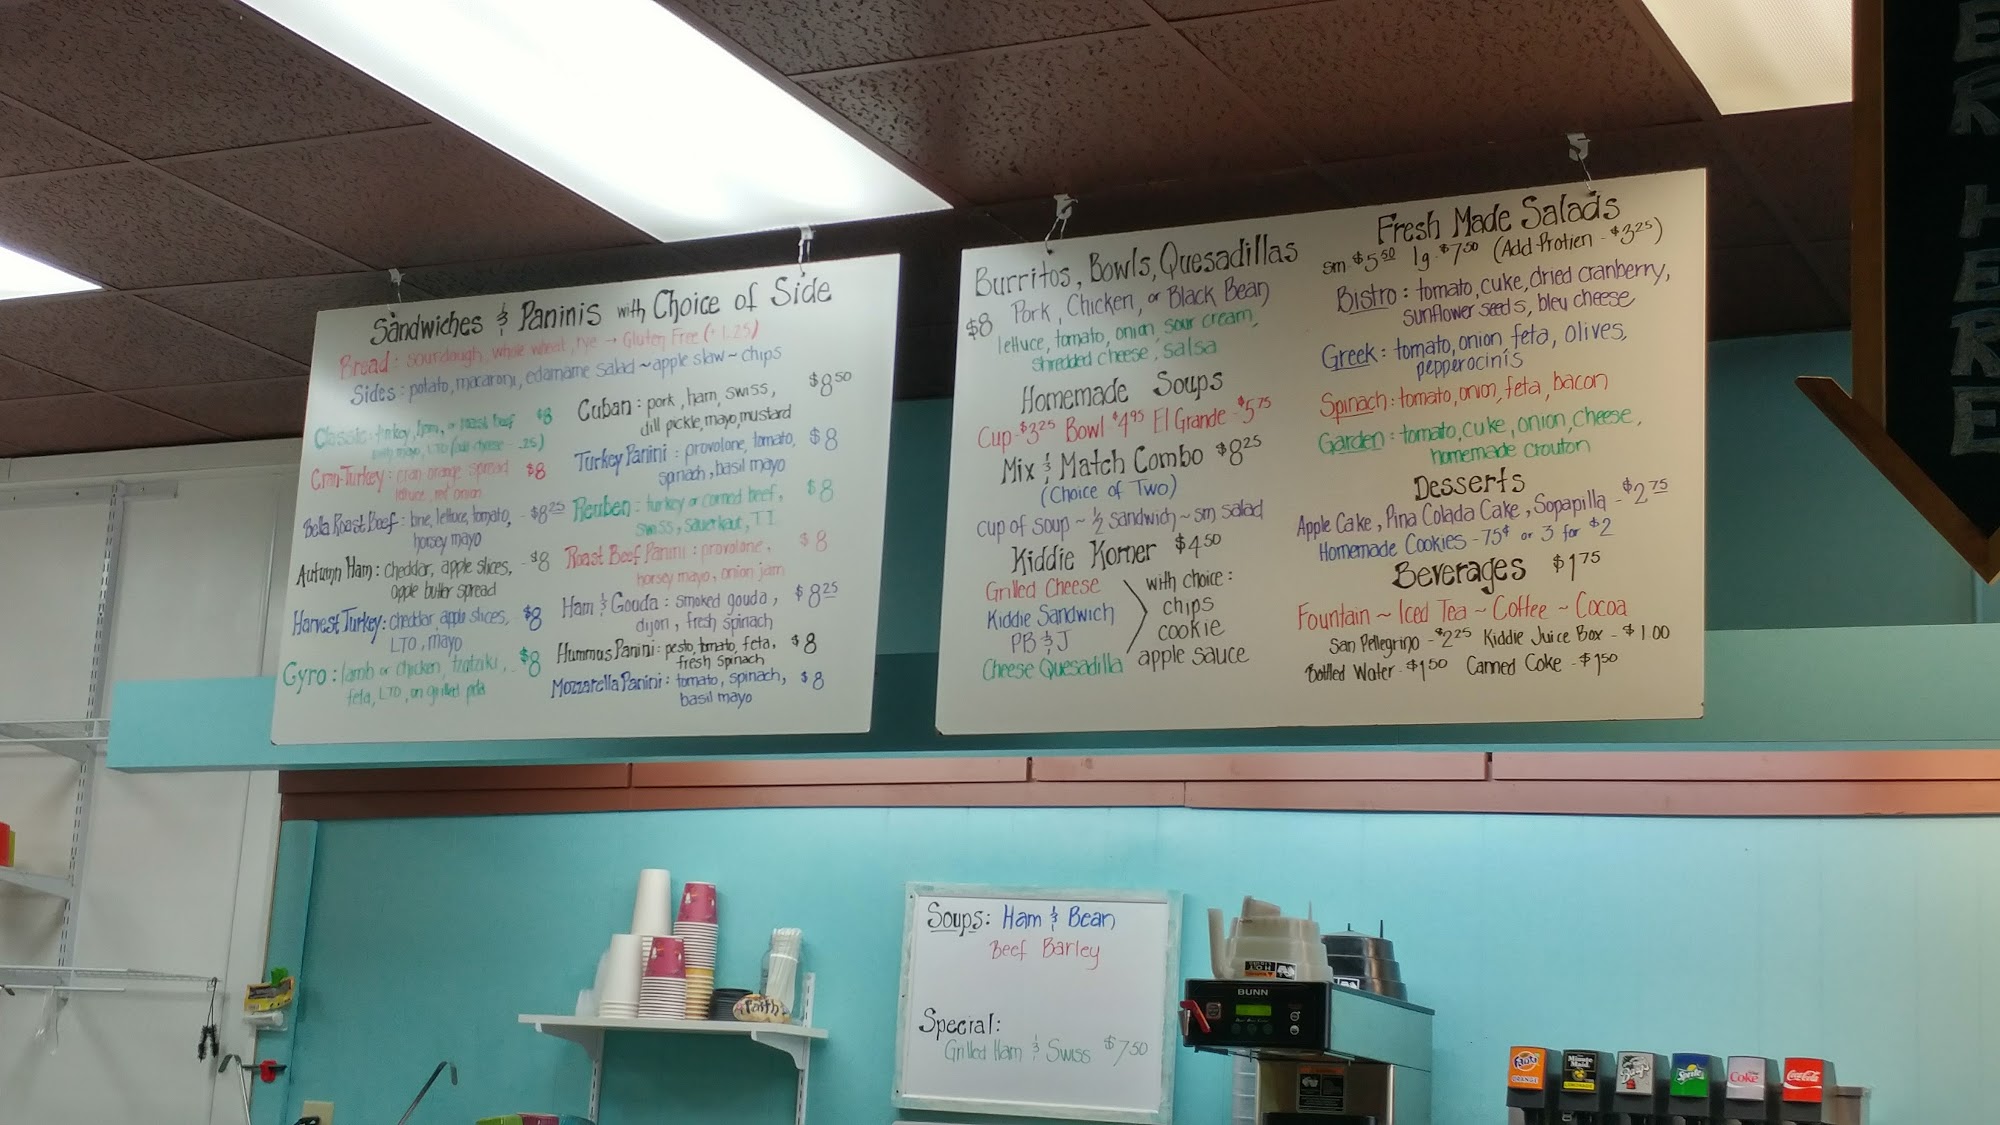 Sandwiches & Paninis with Choice of Side
Bread: sourdough, whole wheat, rye → Gluten Free (+1.25)
Sides: potato, macaroni, edamame salad ~ apple slaw ~ chips
Classic: turkey, ham, or roast beef $8
mayo, LTO (add cheese - .25)
Cran-Turkey: cran-orange spread $8
lettuce, red onion
Bella Roast Beef: brie, lettuce, tomato, - $8.25
horsey mayo
Autumn Ham: cheddar, apple slices, - $8
apple butter spread
Harvest Turkey: cheddar, apple slices, $8
LTO, mayo
Gyro: lamb or chicken, tzatziki, - $8
feta, LTO, on grilled pita
Cuban: pork, ham, swiss, $8.50
dill pickle, mayo, mustard
Turkey Panini: provolone, tomato, $8
spinach, basil mayo
Reuben: turkey or corned beef, $8
swiss, sauerkraut, T.I.
Roast Beef Panini: provolone, $8
horsey mayo, onion jam
Ham & Gouda: smoked gouda, $8.25
dijon, fresh spinach
Hummus Panini: pesto, tomato, feta, $8
fresh spinach
Mozzarella Panini: tomato, spinach, $8
basil mayo
Burritos, Bowls, Quesadillas
$8 Pork, Chicken, or Black Bean
lettuce, tomato, onion, sour cream,
shredded cheese, salsa
Homemade Soups
Cup-$3.25 Bowl-$4.95 El Grande-$5.75
Mix & Match Combo $8.25
(Choice of Two)
cup of soup ~ ½ sandwich ~ sm salad
Kiddie Korner $4.50
Grilled Cheese
Kiddie Sandwich
PB & J
Cheese Quesadilla
with choice:
chips
cookie
apple sauce
Fresh Made Salads
sm-$5.50 lg-$7.50 (Add Protien-$3.25)
Bistro: tomato, cuke, dried cranberry,
sunflower seeds, bleu cheese
Greek: tomato, onion, feta, olives,
pepperocinis
Spinach: tomato, onion, feta, bacon
Garden: tomato, cuke, onion, cheese,
homemade crouton
Desserts
Apple Cake, Pina Colada Cake, Sopapilla - $2.75
Homemade Cookies - 75¢ or 3 for $2
Beverages $1.75
Fountain ~ Iced Tea ~ Coffee ~ Cocoa
San Pellegrino - $2.25 Kiddie Juice Box - $1.00
Bottled Water - $1.50 Canned Coke - $1.50
ER HERE
Soups: Ham & Bean
Beef Barley
Special:
Grilled Ham & Swiss $7.50
Faith
BUNN
Fanta
ORANGE
Minute Maid
LEMONADE
Barq's
Sprite
Diet Coke
Coca-Cola